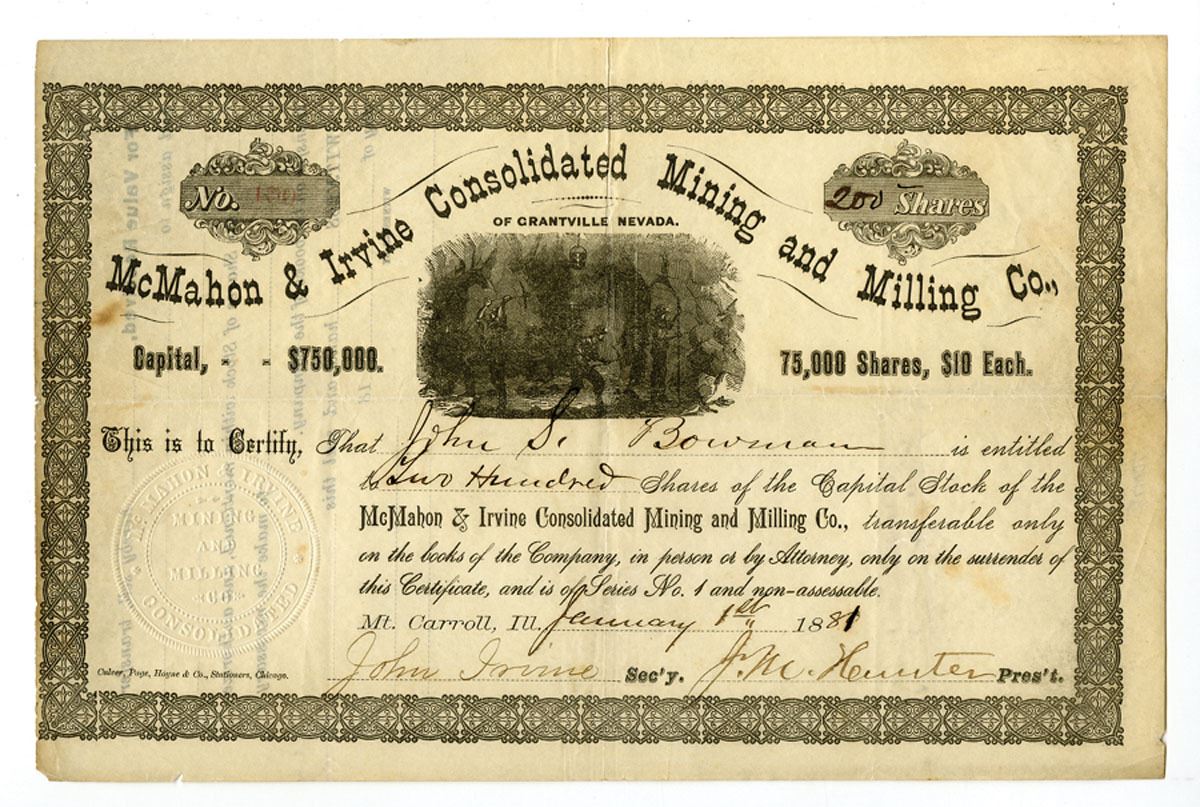 No.
200 Shares
McMahon & Irvine Consolidated Mining and Milling Co.,
OF GRANTVILLE NEVADA.
Capital, - - $750,000.
75,000 Shares, $10 Each.
This is to Certify, That John S. Bowman is entitled
to Two Hundred Shares of the Capital Stock of the
McMahon & Irvine Consolidated Mining and Milling Co., transferable only
on the books of the Company, in person or by Attorney, only on the surrender of
this Certificate, and is of Series No. 1 and non-assessable.
Mt. Carroll, Ill. January 1st 1881
John Irvine Sec'y. J. M. Hunter Pres't.
Culver, Page, Hoyne & Co., Stationers, Chicago.
Mc MAHON & IRVINE
MINING
AND
MILLING
CO
CONSOLIDATED